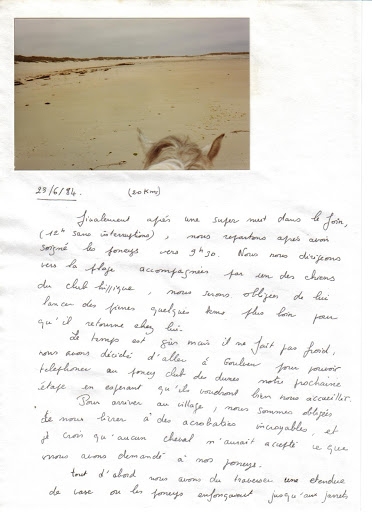 23/6/84. (20 Kms)
Finalement après une super nuit dans le foin,
(12h sans interruptions), nous repartons après avoir
soigné les poneys vers 9h30. Nous nous dirigeons
vers la plage accompagnées par un des chiens
du club hippique, nous serons obligées de lui
lancer des pierres quelques kms plus loin pour
qu'il retourne chez lui.
Le temps est gris mais il ne fait pas froid,
nous avons décidé d'aller à Goulven pour pouvoir
téléphoner au poney club des dunes notre prochaine
étape en espérant qu'ils voudront bien nous accueillir.
Pour arriver au village, nous sommes obligées
de nous livrer à des acrobaties incroyables, et
je crois qu'aucun cheval n'aurait accepté ce que
nous avons demandé à nos poneys.
tout d'abord nous avons du traverser une étendue
de vase ou les poneys enfonçaient jusqu'aux jarrets